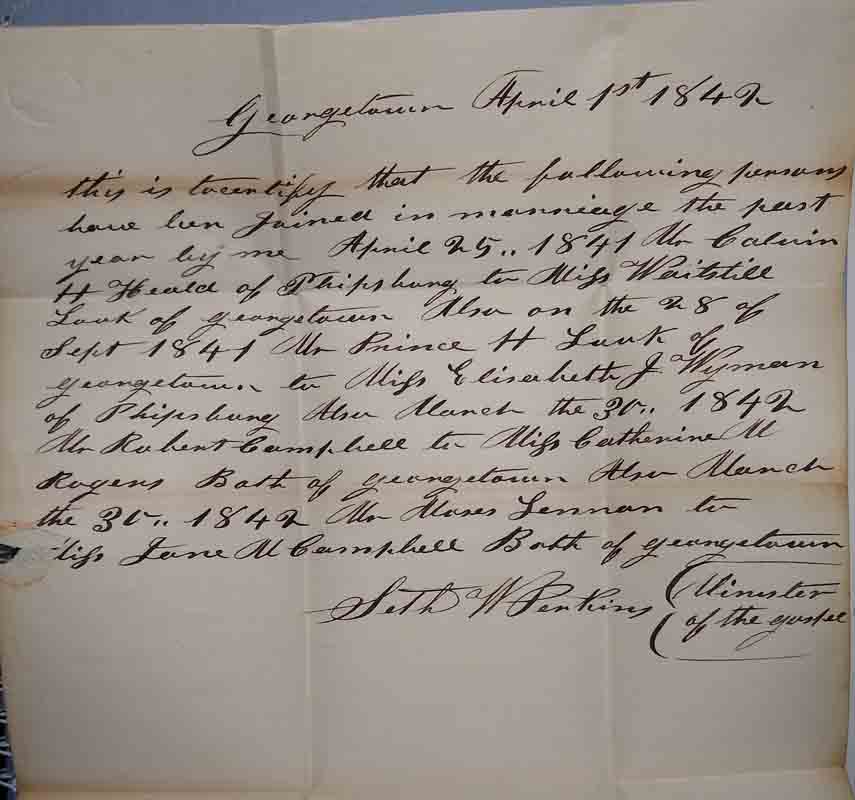 Georgetown April 1st 1842
this is tocertify that the following persons
have ben Joined in marriage the past
year by me April 25.. 1841 Mr Calvin
H Heald of Phipsburg to Miss Waitstill
Look of georgetown Also on the 28 of
Sept 1841 Mr Prince H Look of
georgetown to Miss Elisabeth J Wyman
of Phipsburg Also March the 30.. 1842
Mr Robert Campbell to Miss Catherine M
Rogers Both of georgetown Also March
the 30.. 1842 Mr Moses Lennan to
Miss Jane M Campbell Both of georgetown
Seth W Perkins (Minister
(of the gospel